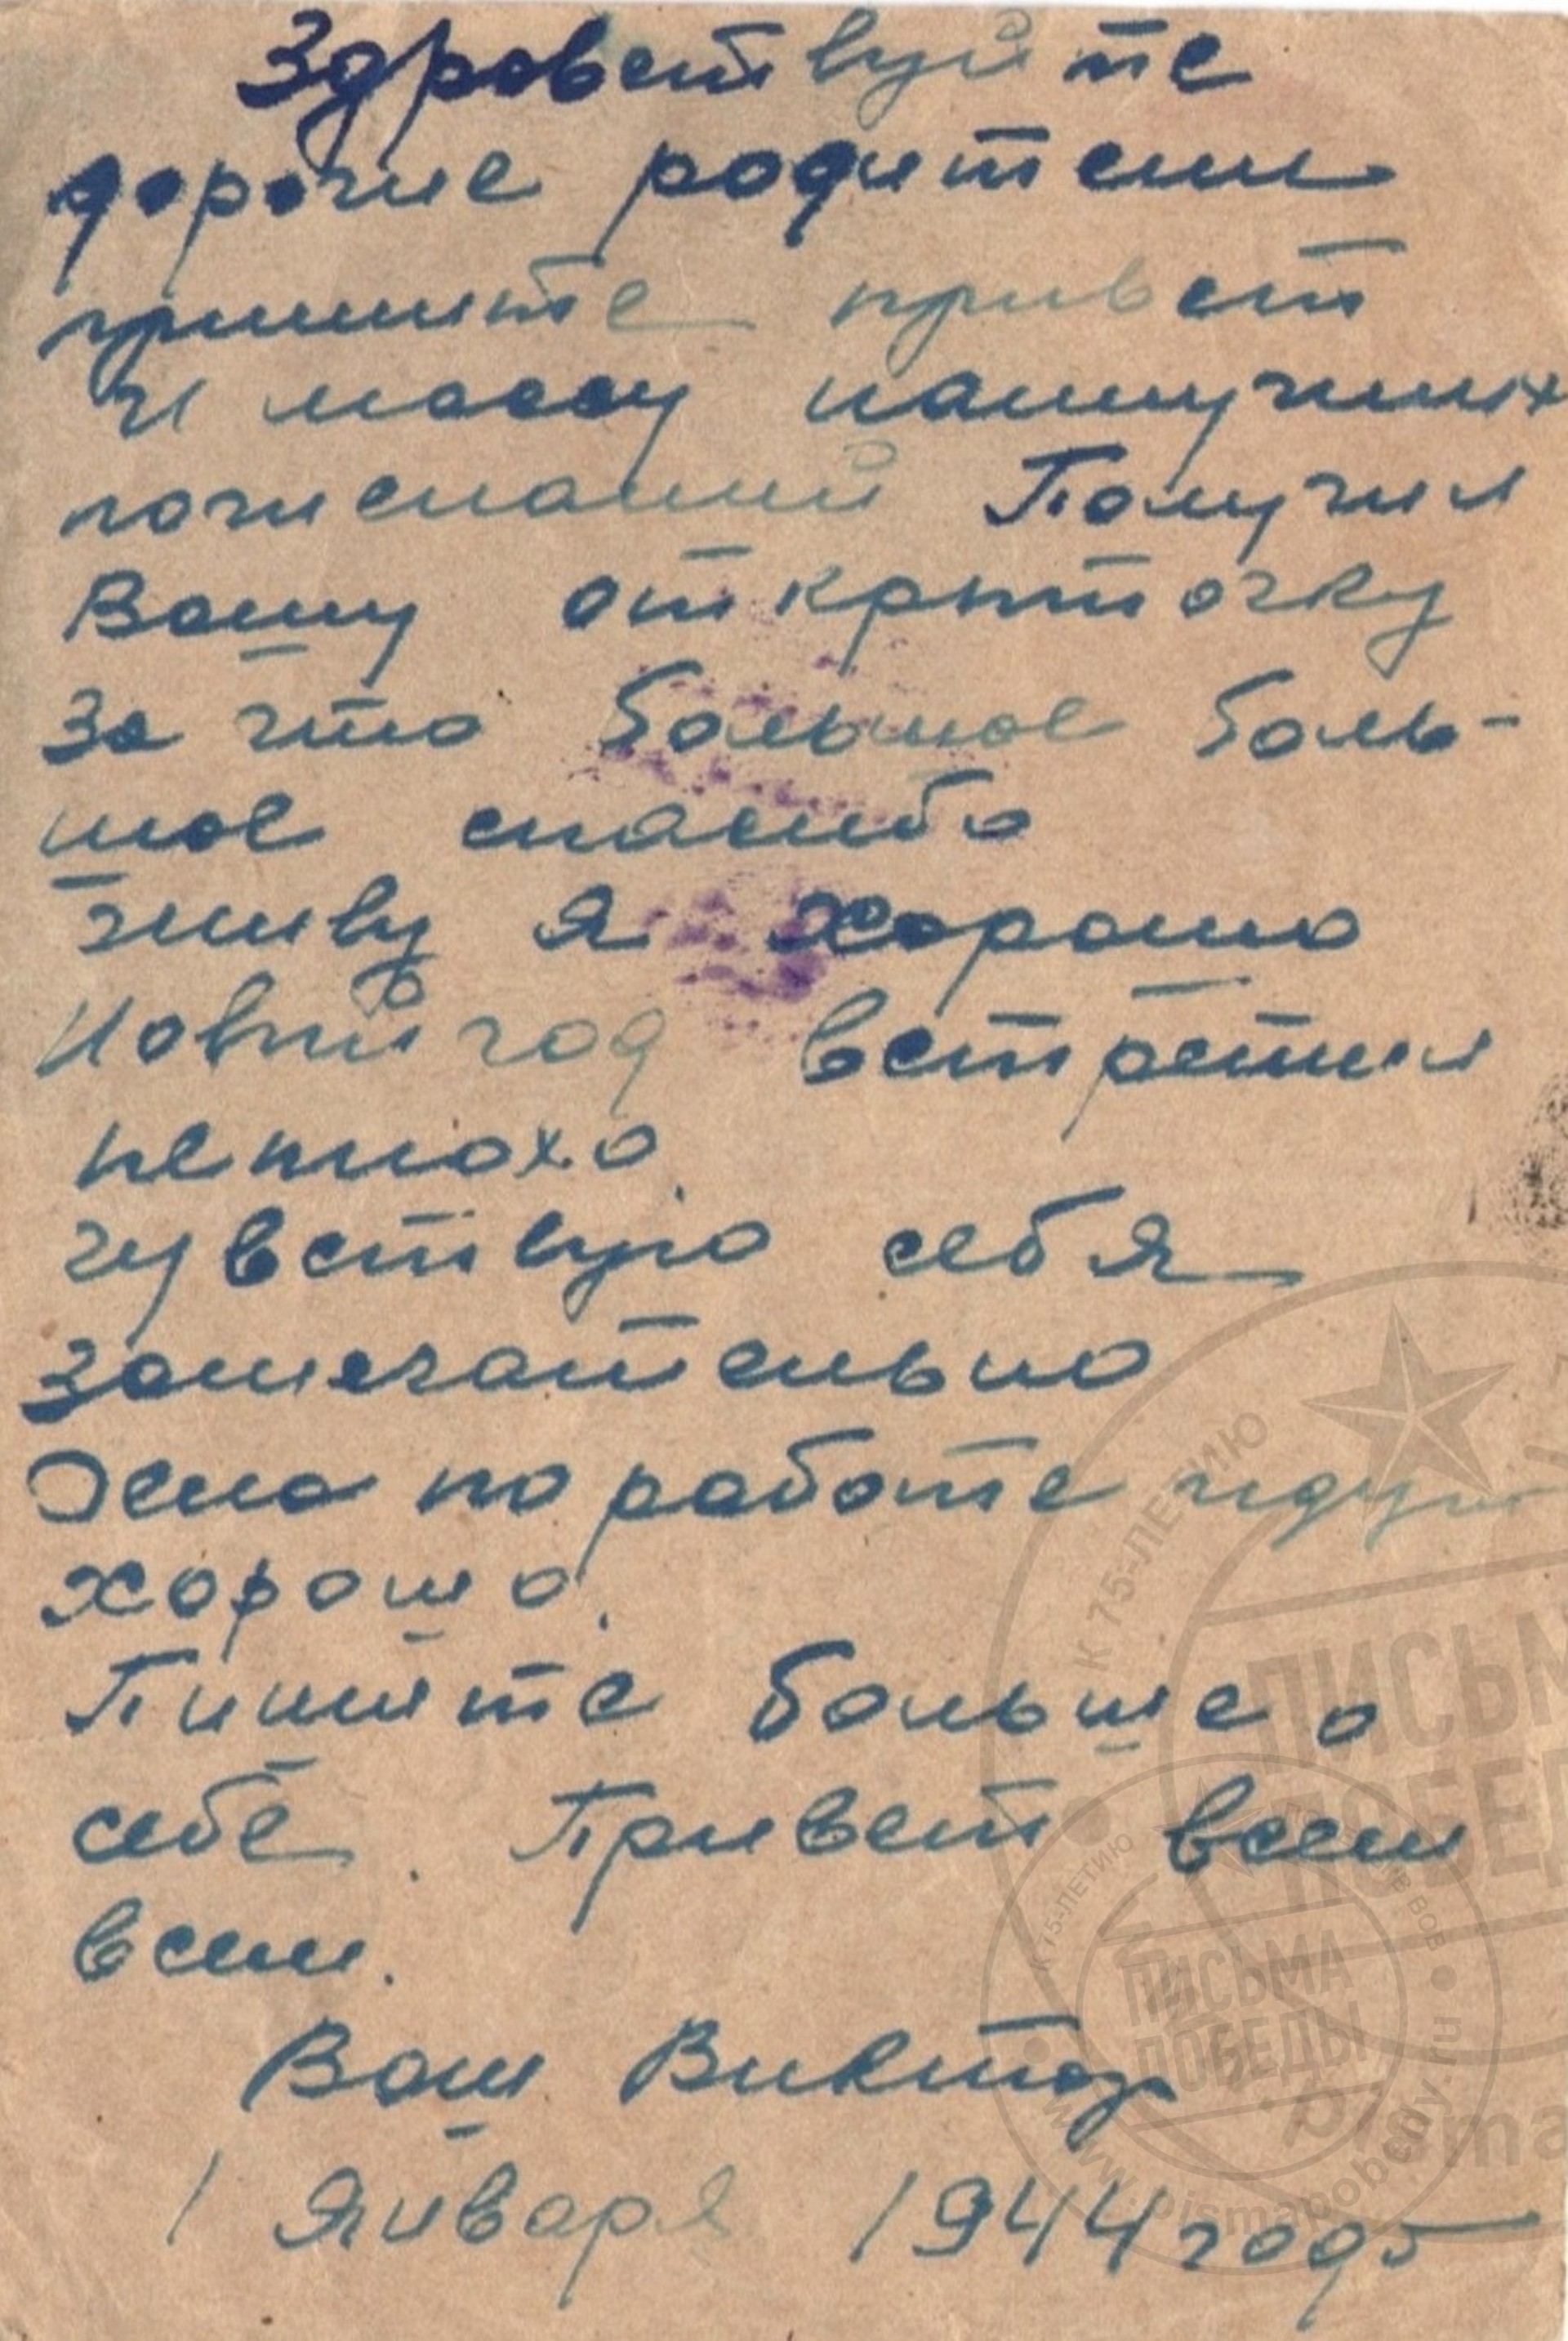 Здровствуйте
дорогие родители
примите привет
и массу наилучших
пожеланий Получил
Вашу открыточку
За что большое боль-
шое спасибо
живу я хорошо
Новый год встретил
неплохо.
чувствую себя
замечательно
Дела по работе идут
хорошо.
Пишите больше о
себе. Привет всем
всем.
Ваш Виктор
1 Января 1944 года
К 75-ЛЕТИЮ
ПИСЬМА
ПОБЕДЫ
К 75-ЛЕТИЮ
ПИСЬМА
ПОБЕДЫ
www.pismapobedy.ru